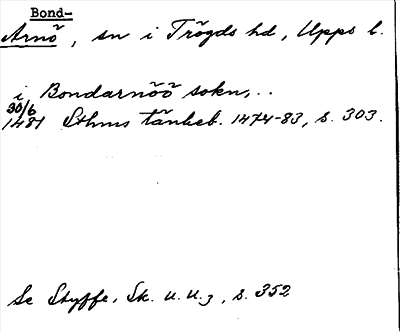 Bond-
Arnö, sn i Trögds hd, Upps l.
i Bondarnöö sokn,..
30/6
1481 Sthms tänkeb. 1474-83, s. 303.
Se Styffe, Sk. u. u.3, s. 352